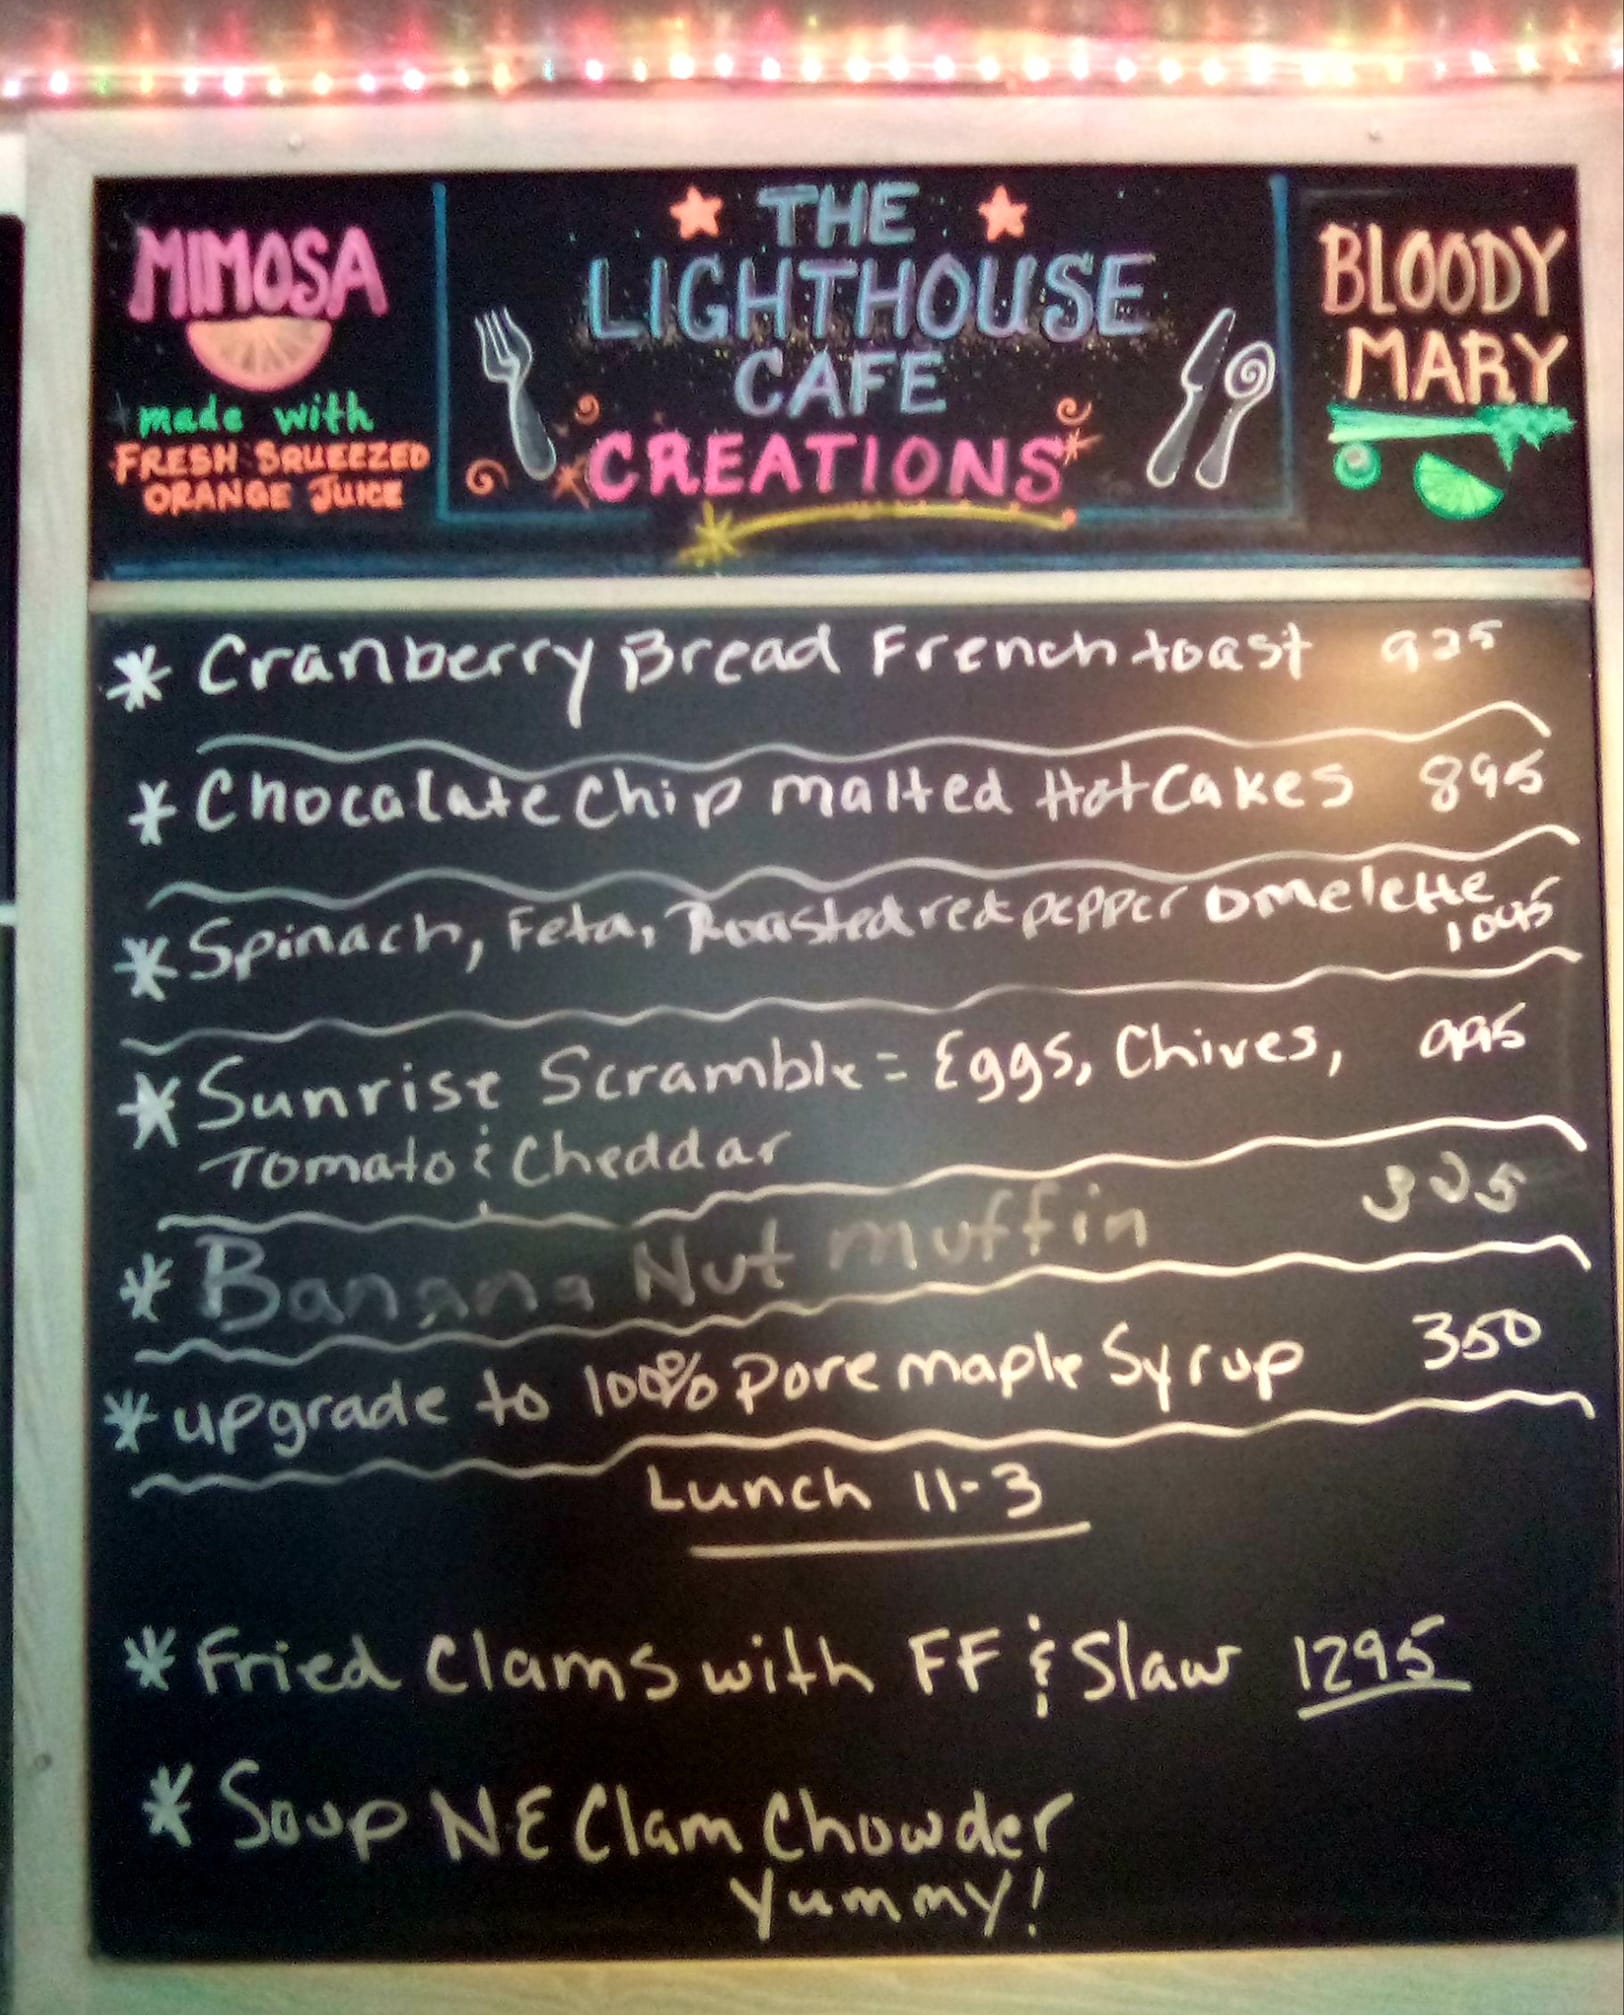 MIMOSA
made with
FRESH SQUEEZED
ORANGE JUICE
THE
LIGHTHOUSE
CAFE
CREATIONS
BLOODY
MARY
* Cranberry Bread French toast 925
* Chocalate Chip malted Hot Cakes 895
* Spinach, Feta, Roasted red pepper omelette
1095
* Sunrise Scramble = Eggs, Chives, 995
Tomato & Cheddar
* Banana Nut muffin 325
* upgrade to 100% pore maple Syrup 350
Lunch 11-3
* Fried Clams with FF & Slaw 1295
* Soup NE Clam Chowder
Yummy!